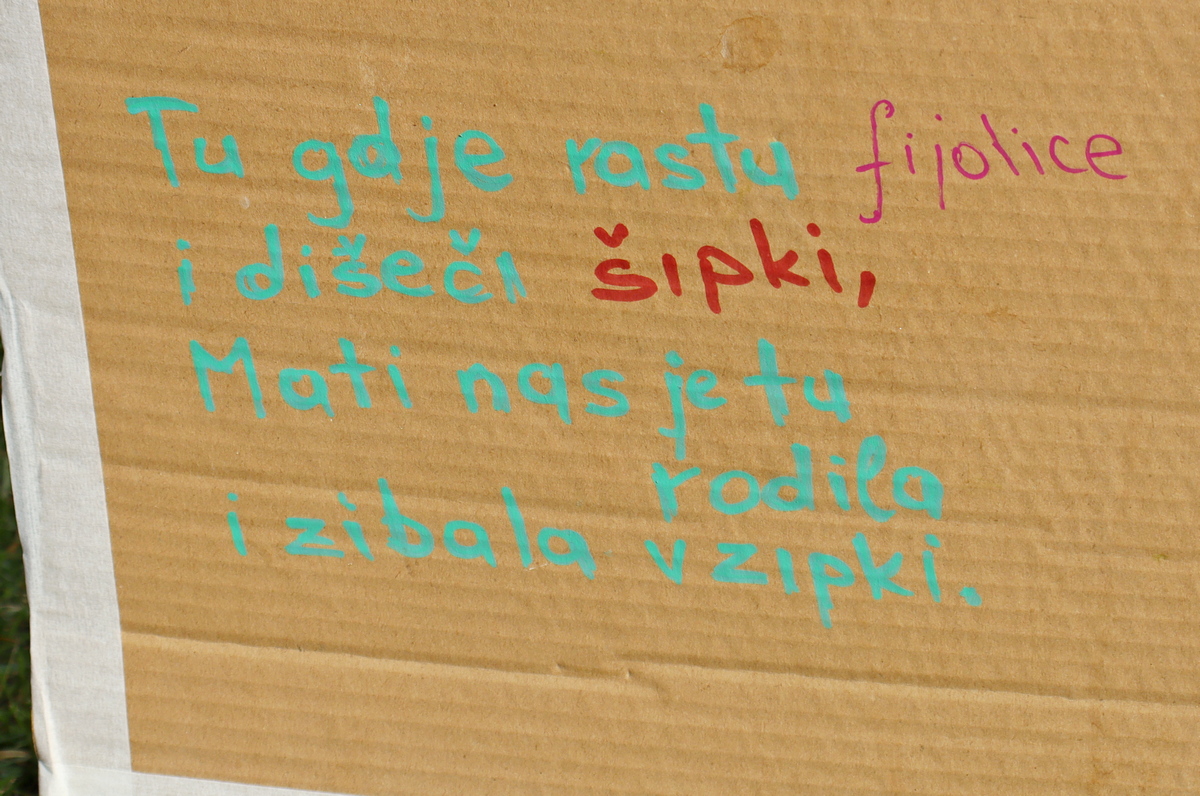 Tu gdje rastu fijolice
i dišeči šipki,
Mati nas je tu
rodila
i zibala v zipki.